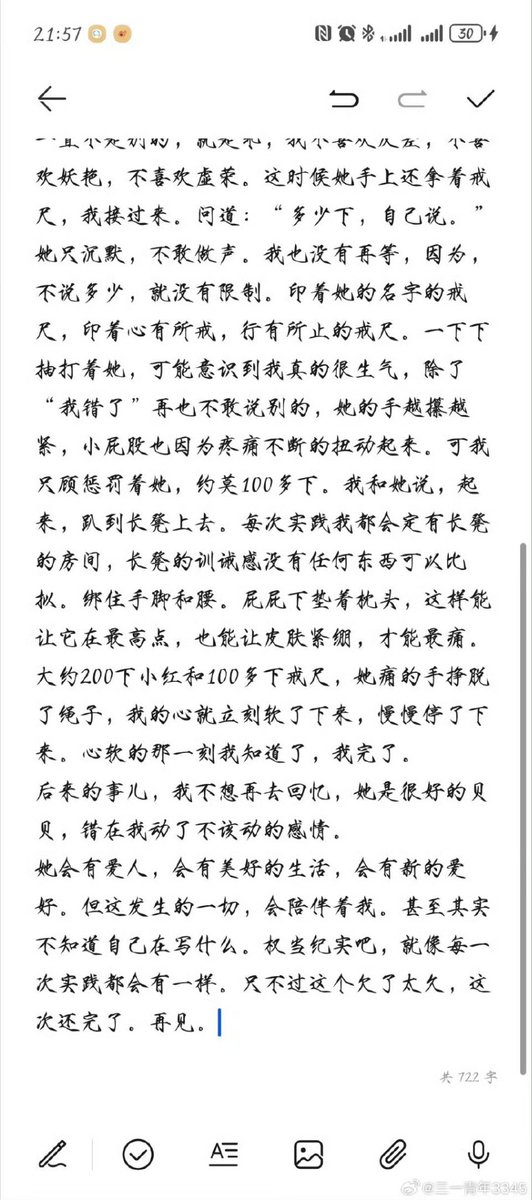 21:57
30
一直不是别的，就是乖，我不喜欢反差，不喜
欢妖艳，不喜欢虚荣。这时候她手上还拿着戒
尺，我接过来。问道：“多少下，自己说。”
她只沉默，不敢做声。我也没有再等，因为，
不说多少，就没有限制。印着她的名字的戒
尺，印着心有所戒，行有所止的戒尺。一下下
抽打着她，可能意识到我真的很生气，除了
“我错了”再也不敢说别的，她的手越攥越
紧，小屁股也因为疼痛不断的扭动起来。可我
只顾惩罚着她，约莫100多下。我和她说，起
来，趴到长凳上去。每次实践我都会定有长凳
的房间，长凳的训诫感没有任何东西可以比
拟。绑住手脚和腰。屁屁下垫着枕头，这样能
让它在最高点，也能让皮肤紧绷，才能最痛。
大约200下小红和100多下戒尺，她痛的手挣脱
了绳子，我的心就立刻软了下来，慢慢停了下
来。心软的那一刻我知道了，我完了。
后来的事儿，我不想再去回忆，她是很好的贝
贝，错在我动了不该动的感情。
她会有爱人，会有美好的生活，会有新的爱
好。但这发生的一切，会陪伴着我。甚至其实
不知道自己在写什么。权当纪实吧，就像每一
次实践都会有一样。只不过这个欠了太久，这
次还完了。再见。
共 722 字
@三一青年3345